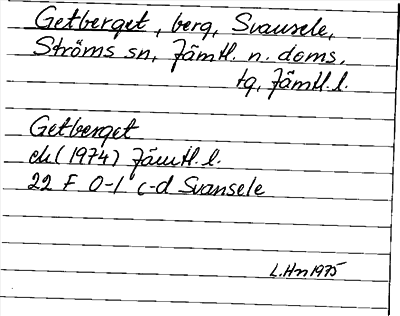 Getberget, berg, Svansele,
Ströms sn, Jämtl. n. doms.
tg, Jämtl. l.
Getberget
ek (1974) Jämtl. l.
22 F 0-1 c-d Svansele
L.Hn 1975